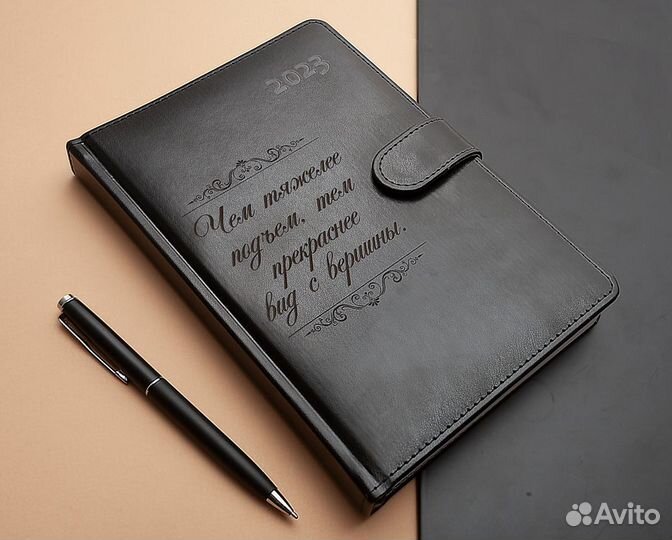 2023
Чем тяжелее
подъем, тем
прекраснее
вид с вершины.
Avito